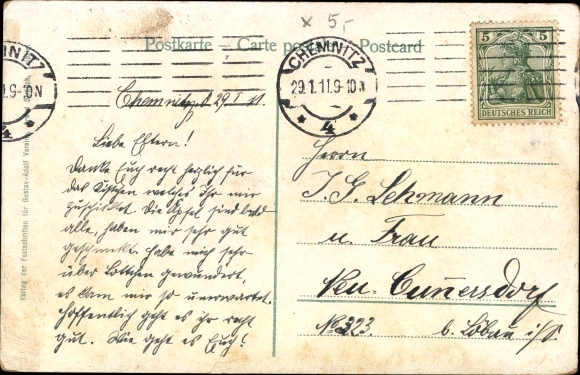 x 5,-
Postkarte – Carte postale – Postcard
CHEMNITZ
29.1.11.9-10N
* 4 *
5 5
DEUTSCHES REICH
Chemnitz, d. 29/I 11.
Liebe Eltern!
Danke Euch recht herzlich für
das Kistchen welches Ihr mir
zuschicktet. Die Äpfel sind bald
alle, haben mir sehr gut
geschmeckt. Habe mich sehr
über Lottchen gewundert,
es kam mir so unerwartet.
Hoffentlich geht es ihr recht
gut. Wie geht es Euch!
Herrn
J. G. Lehmann
u. Frau
Neu-Cunnersdorf
No 323 b. Löbau i/S.
Verlag der Festschriften für Gustav-Adolf Verein